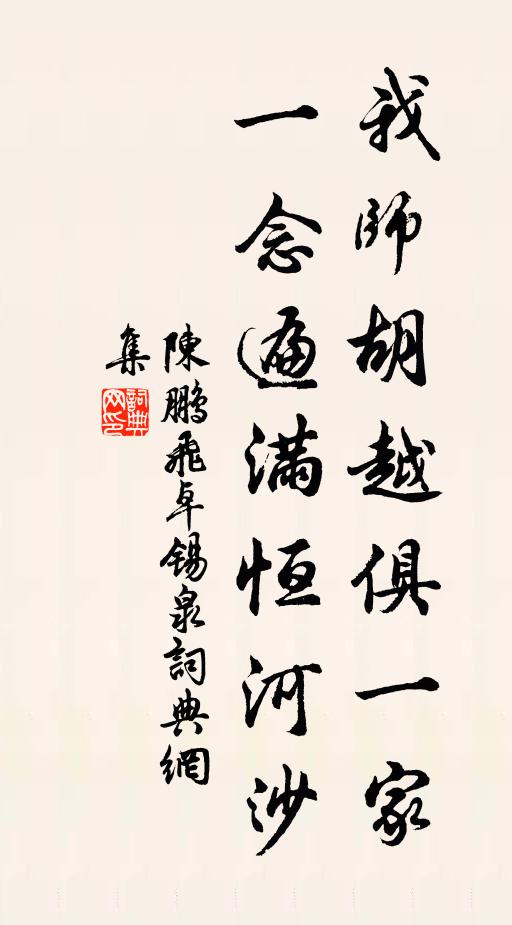 我師胡越俱一家
一念遍滿恒河沙
陳鵬飛卓錫泉詞典網
集
詞典
网印